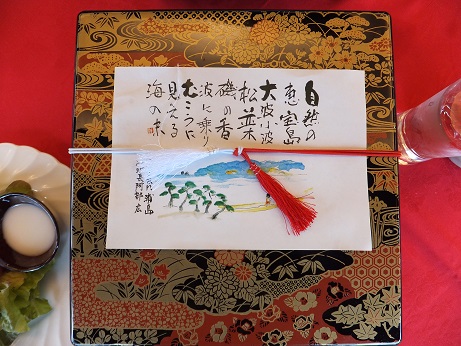 自然の
恵宝島
大波小波
松並木
磯の香
波に乗り
むこうに
見える
海の味